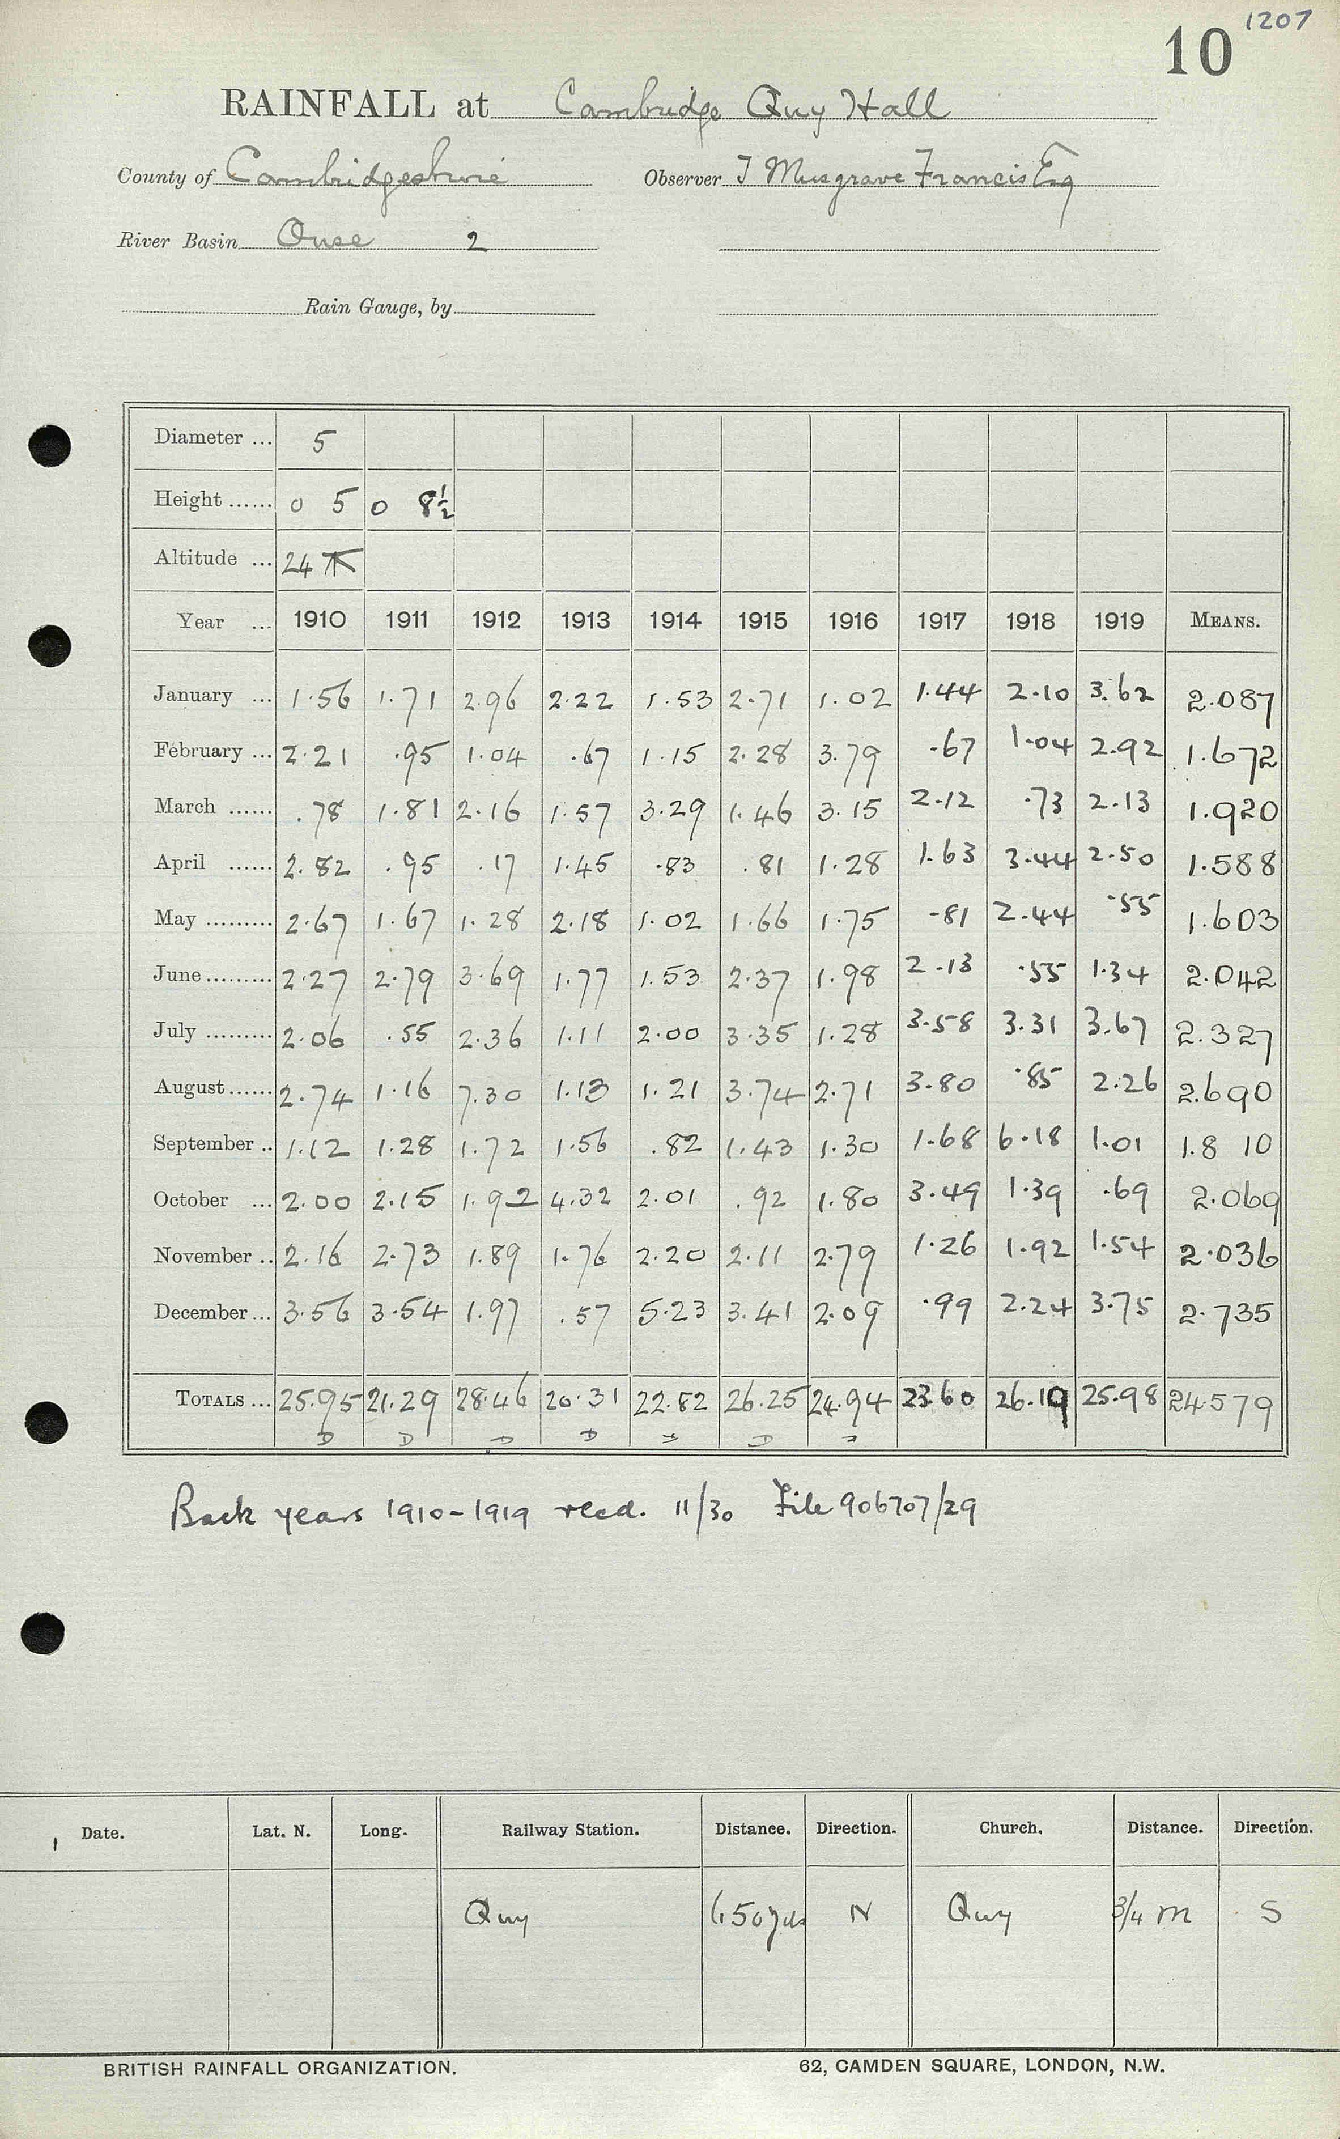 1207
10
RAINFALL at Cambridge Quy Hall
County of Cambridgeshire Observer T Musgrave Francis Esq
River Basin Ouse 2
Rain Gauge, by
Diameter ... 5
Height ...... 0 5 0 8½
Altitude ... 24
Year ... 1910 1911 1912 1913 1914 1915 1916 1917 1918 1919 MEANS.
January ... 1.56 1.71 2.96 2.22 1.53 2.71 1.02 1.44 2.10 3.62 2.087
February ... 2.21 .95 1.04 .67 1.15 2.28 3.79 .67 1.04 2.92 1.672
March ...... .78 1.81 2.16 1.57 3.29 1.46 3.15 2.12 .73 2.13 1.920
April ...... 2.82 .95 .17 1.45 .83 .81 1.28 1.63 3.44 2.50 1.588
May ......... 2.67 1.67 1.28 2.18 1.02 1.66 1.75 .81 2.44 .55 1.603
June ......... 2.27 2.79 3.69 1.77 1.53 2.37 1.98 2.13 .55 1.34 2.042
July ......... 2.06 .55 2.36 1.11 2.00 3.35 1.28 3.58 3.31 3.67 2.327
August ...... 2.74 1.16 7.30 1.13 1.21 3.74 2.71 3.80 .85 2.26 2.690
September .. 1.12 1.28 1.72 1.56 .82 1.43 1.30 1.68 6.18 1.01 1.8 10
October ... 2.00 2.15 1.92 4.32 2.01 .92 1.80 3.49 1.39 .69 2.069
November .. 2.16 2.73 1.89 1.76 2.20 2.11 2.79 1.26 1.92 1.54 2.036
December ... 3.56 3.54 1.97 .57 5.23 3.41 2.09 .99 2.24 3.75 2.735
TOTALS ... 25.95 21.29 28.46 20.31 22.82 26.25 24.94 23.60 26.19 25.98 24579
Back years 1910-1919 recd. 11/30 File 906707/29
Date. Lat. N. Long. Railway Station. Distance. Direction. Church. Distance. Direction.
Quy N Quy 3/4 m S
BRITISH RAINFALL ORGANIZATION. 62, CAMDEN SQUARE, LONDON, N.W.